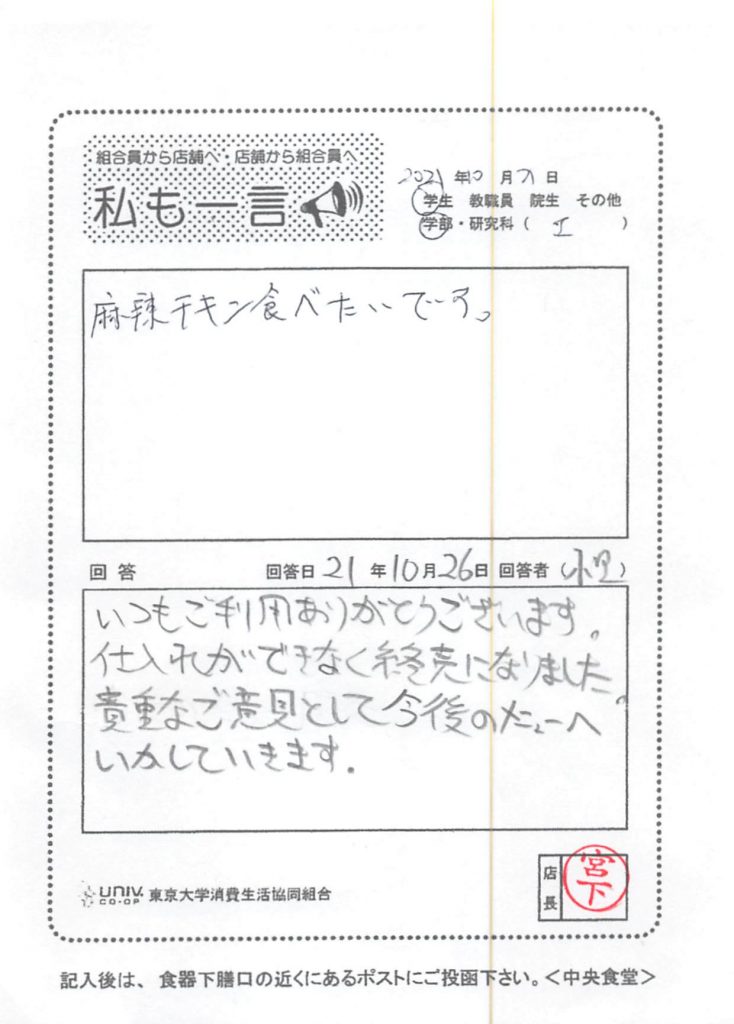 組合員から店舗へ・店舗から組合員へ
私も一言
2021年10月21日
学生 教職員 院生 その他
学部・研究科（工）
麻辣チキン食べたいです。
回答 回答日21年10月26日 回答者（小　）
いつもご利用ありがとうございます。
仕入れができなく終売になりました。
貴重なご意見として今後のメニューへ
いかしていきます.
UNIV. CO-OP 東京大学消費生活協同組合
店長 宮下
記入後は、食器下膳口の近くにあるポストにご投函下さい。＜中央食堂＞